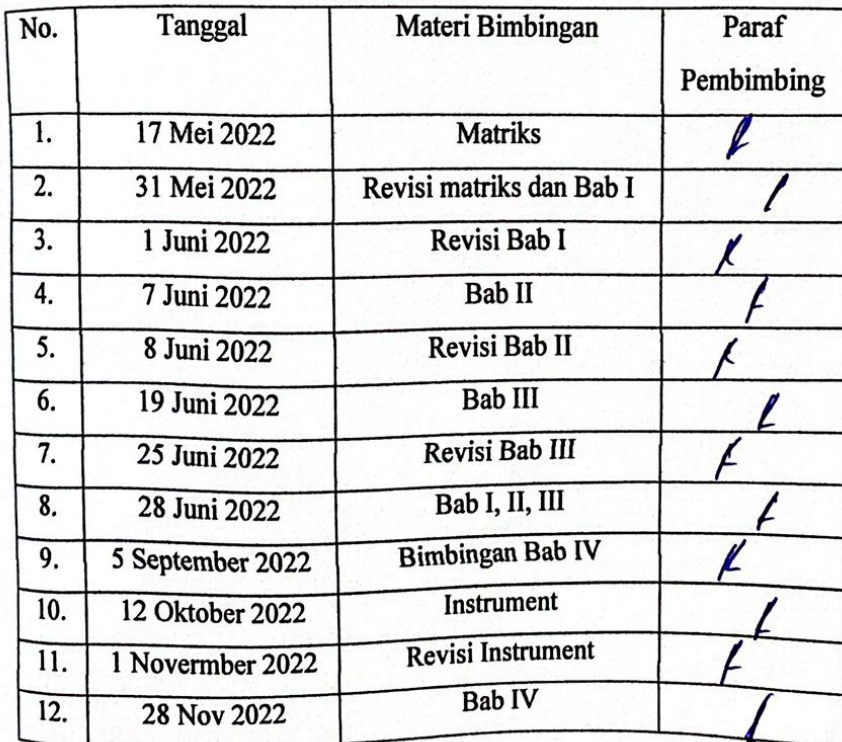 No. Tanggal Materi Bimbingan Paraf
Pembimbing
1. 17 Mei 2022 Matriks
2. 31 Mei 2022 Revisi matriks dan Bab I
3. 1 Juni 2022 Revisi Bab I
4. 7 Juni 2022 Bab II
5. 8 Juni 2022 Revisi Bab II
6. 19 Juni 2022 Bab III
7. 25 Juni 2022 Revisi Bab III
8. 28 Juni 2022 Bab I, II, III
9. 5 September 2022 Bimbingan Bab IV
10. 12 Oktober 2022 Instrument
11. 1 Novermber 2022 Revisi Instrument
12. 28 Nov 2022 Bab IV